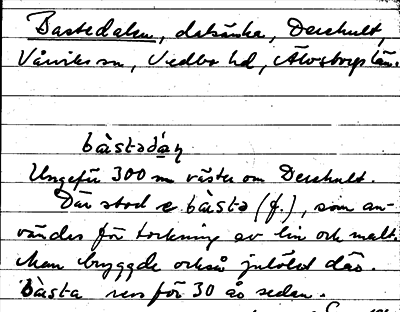 Bastedalen, dalsänka, Derehult,
Vårviks sn, Vedbo hd, Älvsborgs län.
bàstədáɳ
Ungefär 300 m väster om Derehult.
Där stod e bàsta (f.), som an-
vändes för torkning av lin och malt.
Man bryggde också julölet där.
Bàsta revs för 30 år sedan.